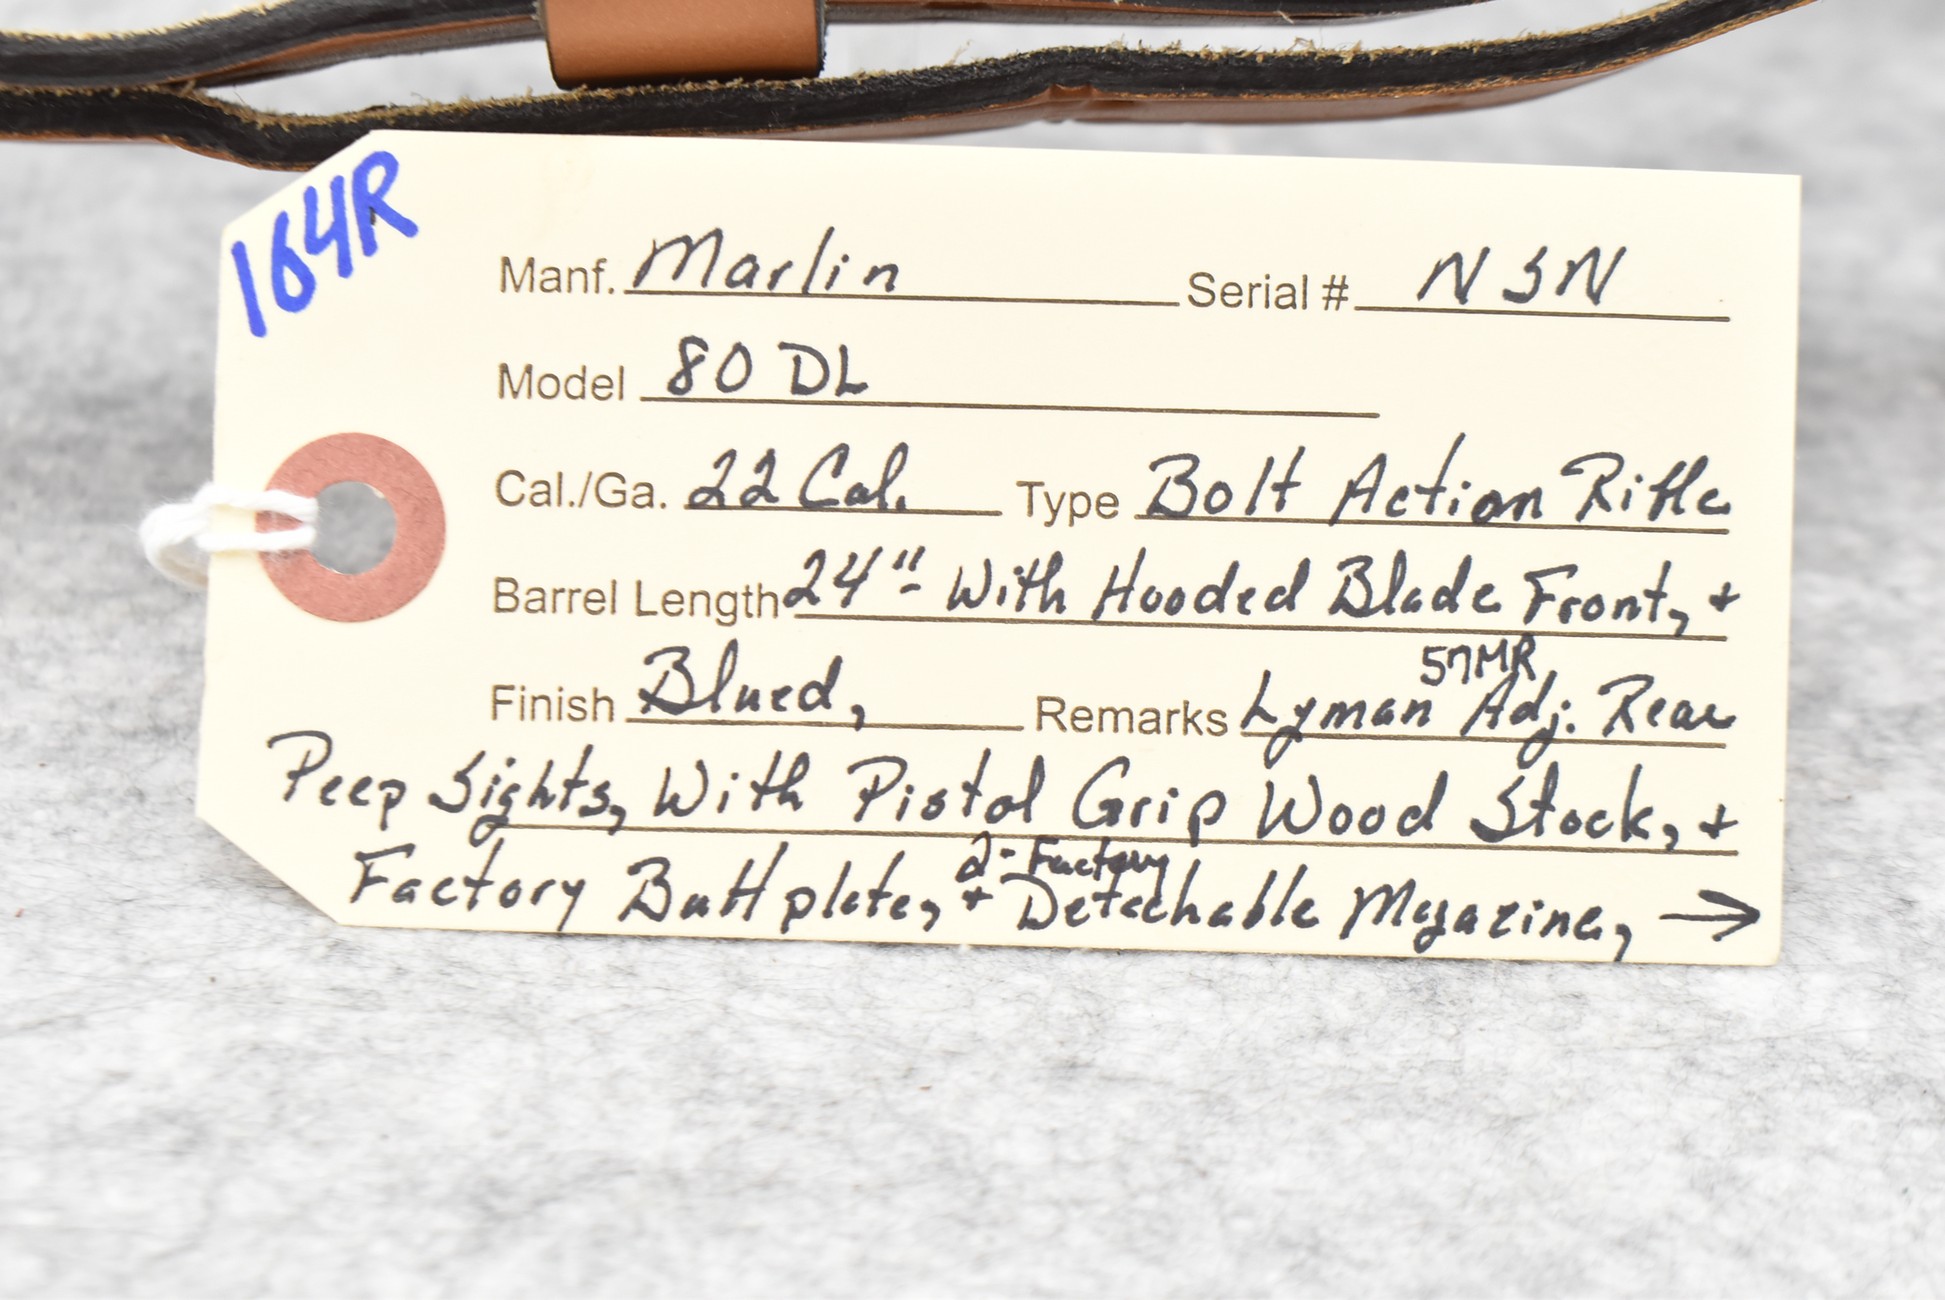 164R
Manf. Marlin Serial # NSN
Model 80 DL
Cal./Ga. 22 Cal. Type Bolt Action Rifle
Barrel Length 24"- With Hooded Blade Front, +
57MR
Finish Blued, Remarks Lyman Adj. Rear
Peep Sights, With Pistol Grip Wood Stock, +
2-Factory
Factory Buttplate, + Detachable Magazine, →